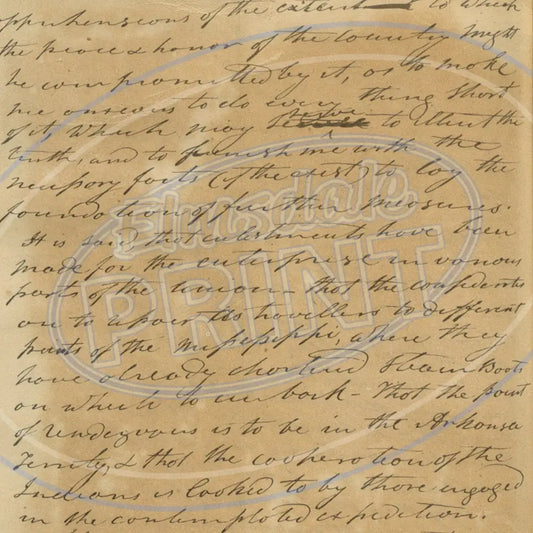 apprehensions of the extent to which
the peace & honor of the Country might
be compromitted by it, as to make
me anxious to do every thing short
of it which may serve to elicit the
truth, and to furnish me with the
necessary facts (if they exist) to lay the
foundation of further measures.
It is said that enlistments have been
made for the enterprise in various
parts of the union – that the confederates
are to repair as travellers to different
points of the Mississippi, where they
have already chartered Steam Boats
on which to embark – That the point
of rendezvous is to be in the Arkansa
Territy, & that the cooperation of the
Indians is looked to by those engaged
in the contemplated expedition.
Elmsdale
PRINT